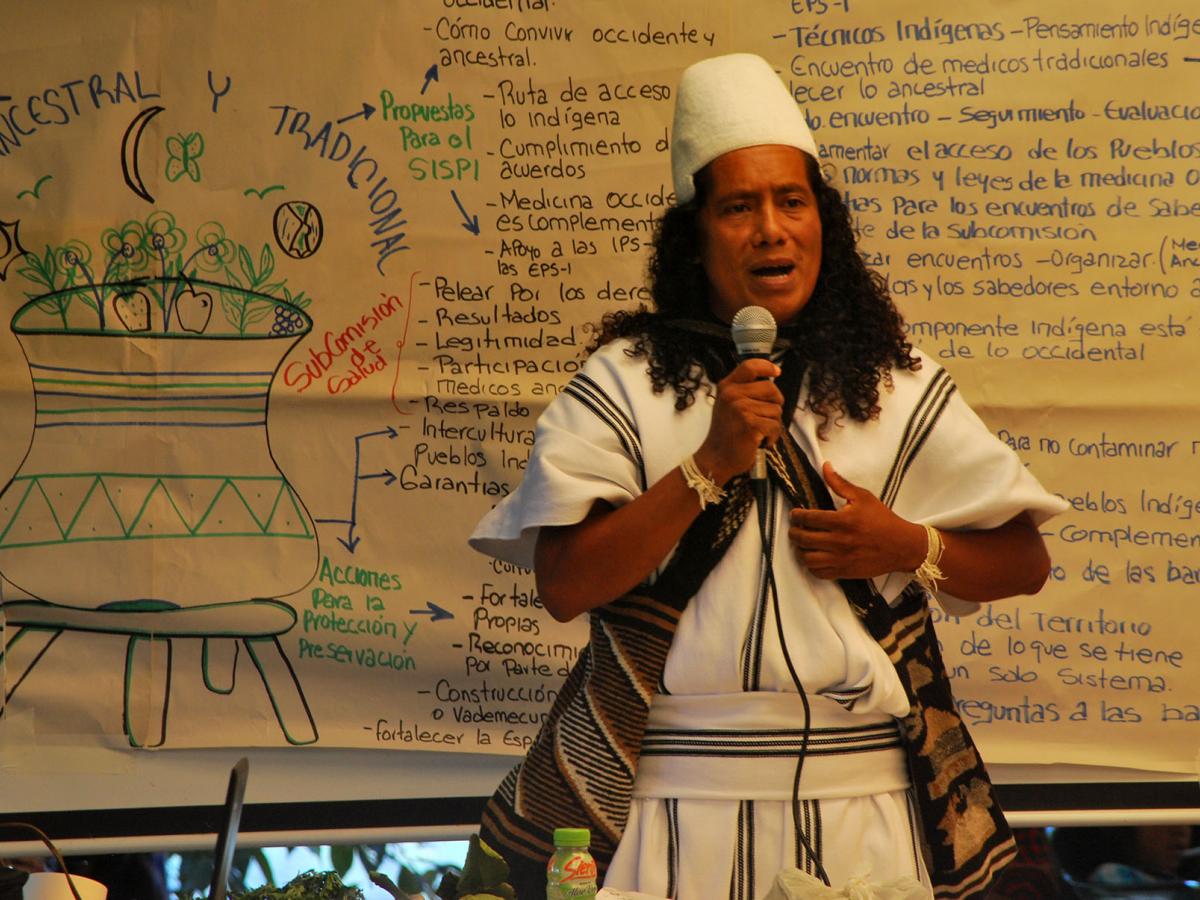 occidental.
-Cómo Convivir occidente y
ancestral.
ANCESTRAL Y
TRADICIONAL
Propuestas
Para el
SISPI
-Ruta de acceso
lo indígena
-Cumplimiento d
acuerdos
-Medicina occide
es complement
-Apoyo a las IPS-
las EPS-I
SubComisión
de
Salud
-Pelear Por los dere
-Resultados
-Legitimidad
-Participació
Medicos anc
-Respaldo
-Intercultura
Pueblos Ind
Garantias
Acciones
Para la
Protección y
Preservación
-Fortale
Propias
-Reconocimi
por Parte d
-Construcción
o Vademecu
-fortalecer la Esp
EPS-I
-Técnicos Indígenas -Pensamiento Indíge
Encuentro de medicos tradicionales -
lecer lo ancestral
do. encuentro - Seguimiento - Evaluació
amentar el acceso de los Pueblos
normas y leyes de la medicina o
has Para los encuentros de Sabe
te de la Subcomisión
zar encuentros -Organizar (Me
Anc
las y los sabedores entorno a
omponente Indígena está
de lo occidental
Para no contaminar
ueblos Indíge
-Complemen
o de las bar
n del Territorio
de lo que se tiene
un solo Sistema.
reguntas a las ba